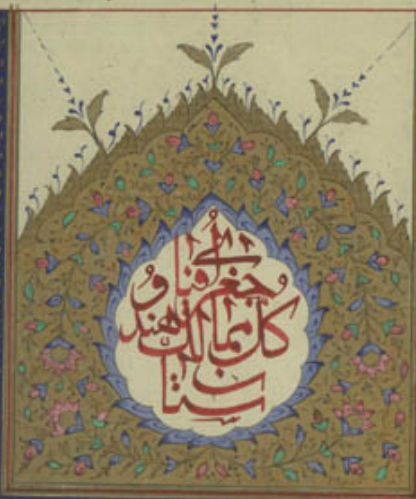 جغرافیای و
کل ممالک هند
ستان